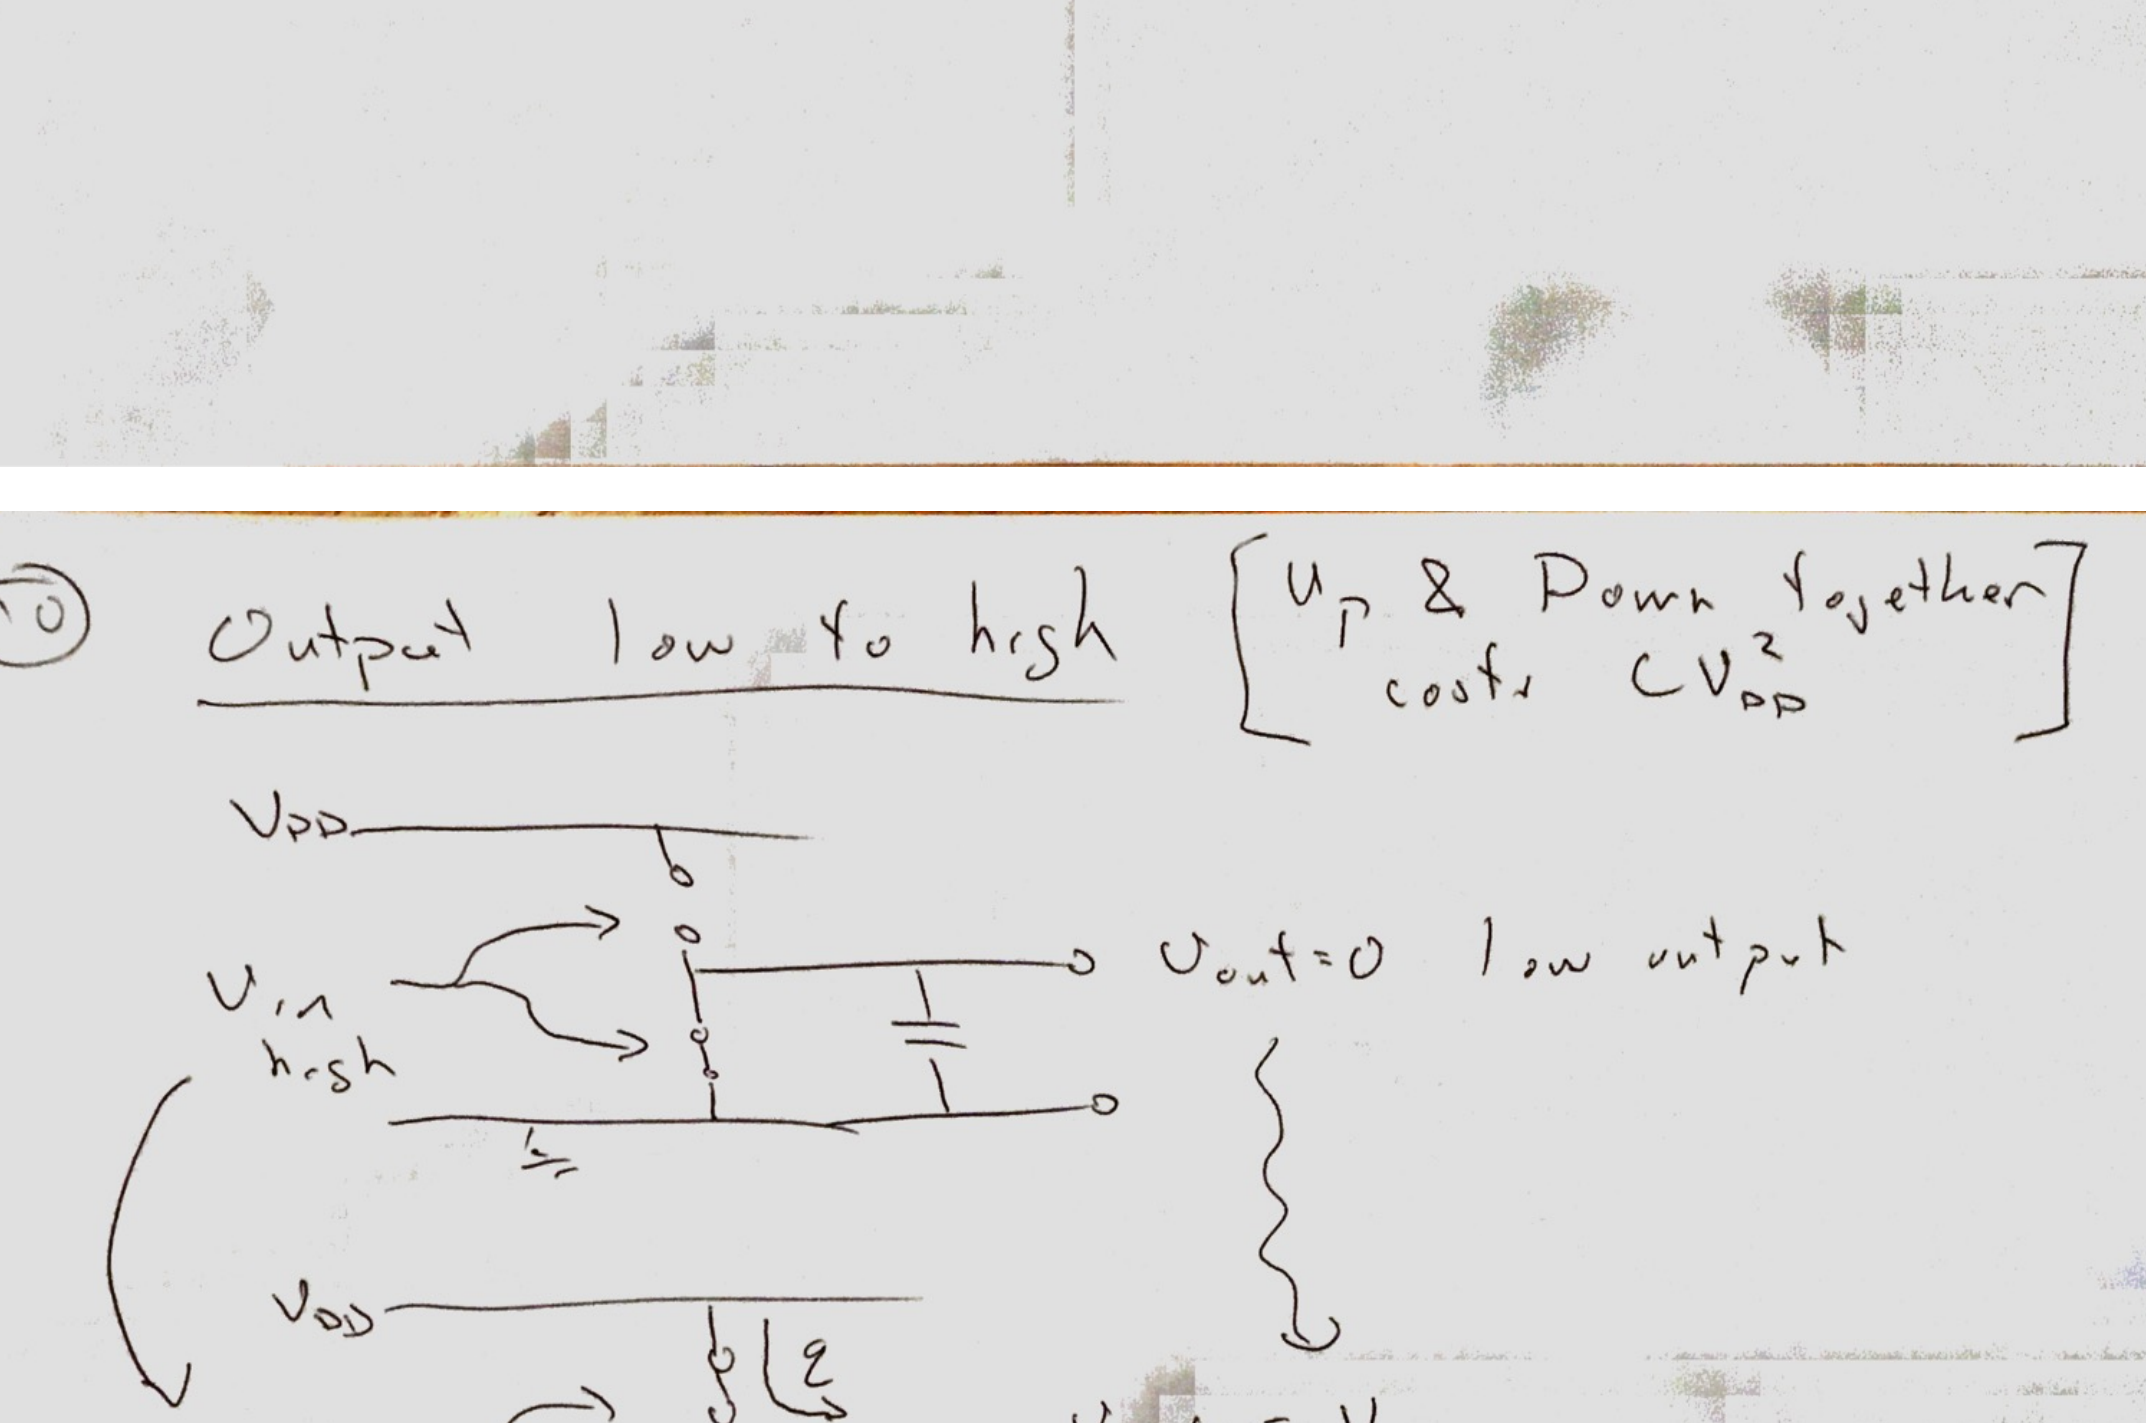 Output low to high
[Up & Down together
costs CV_DD²]
V_DD
V_in
high
V_out = 0 low output
V_DD
q